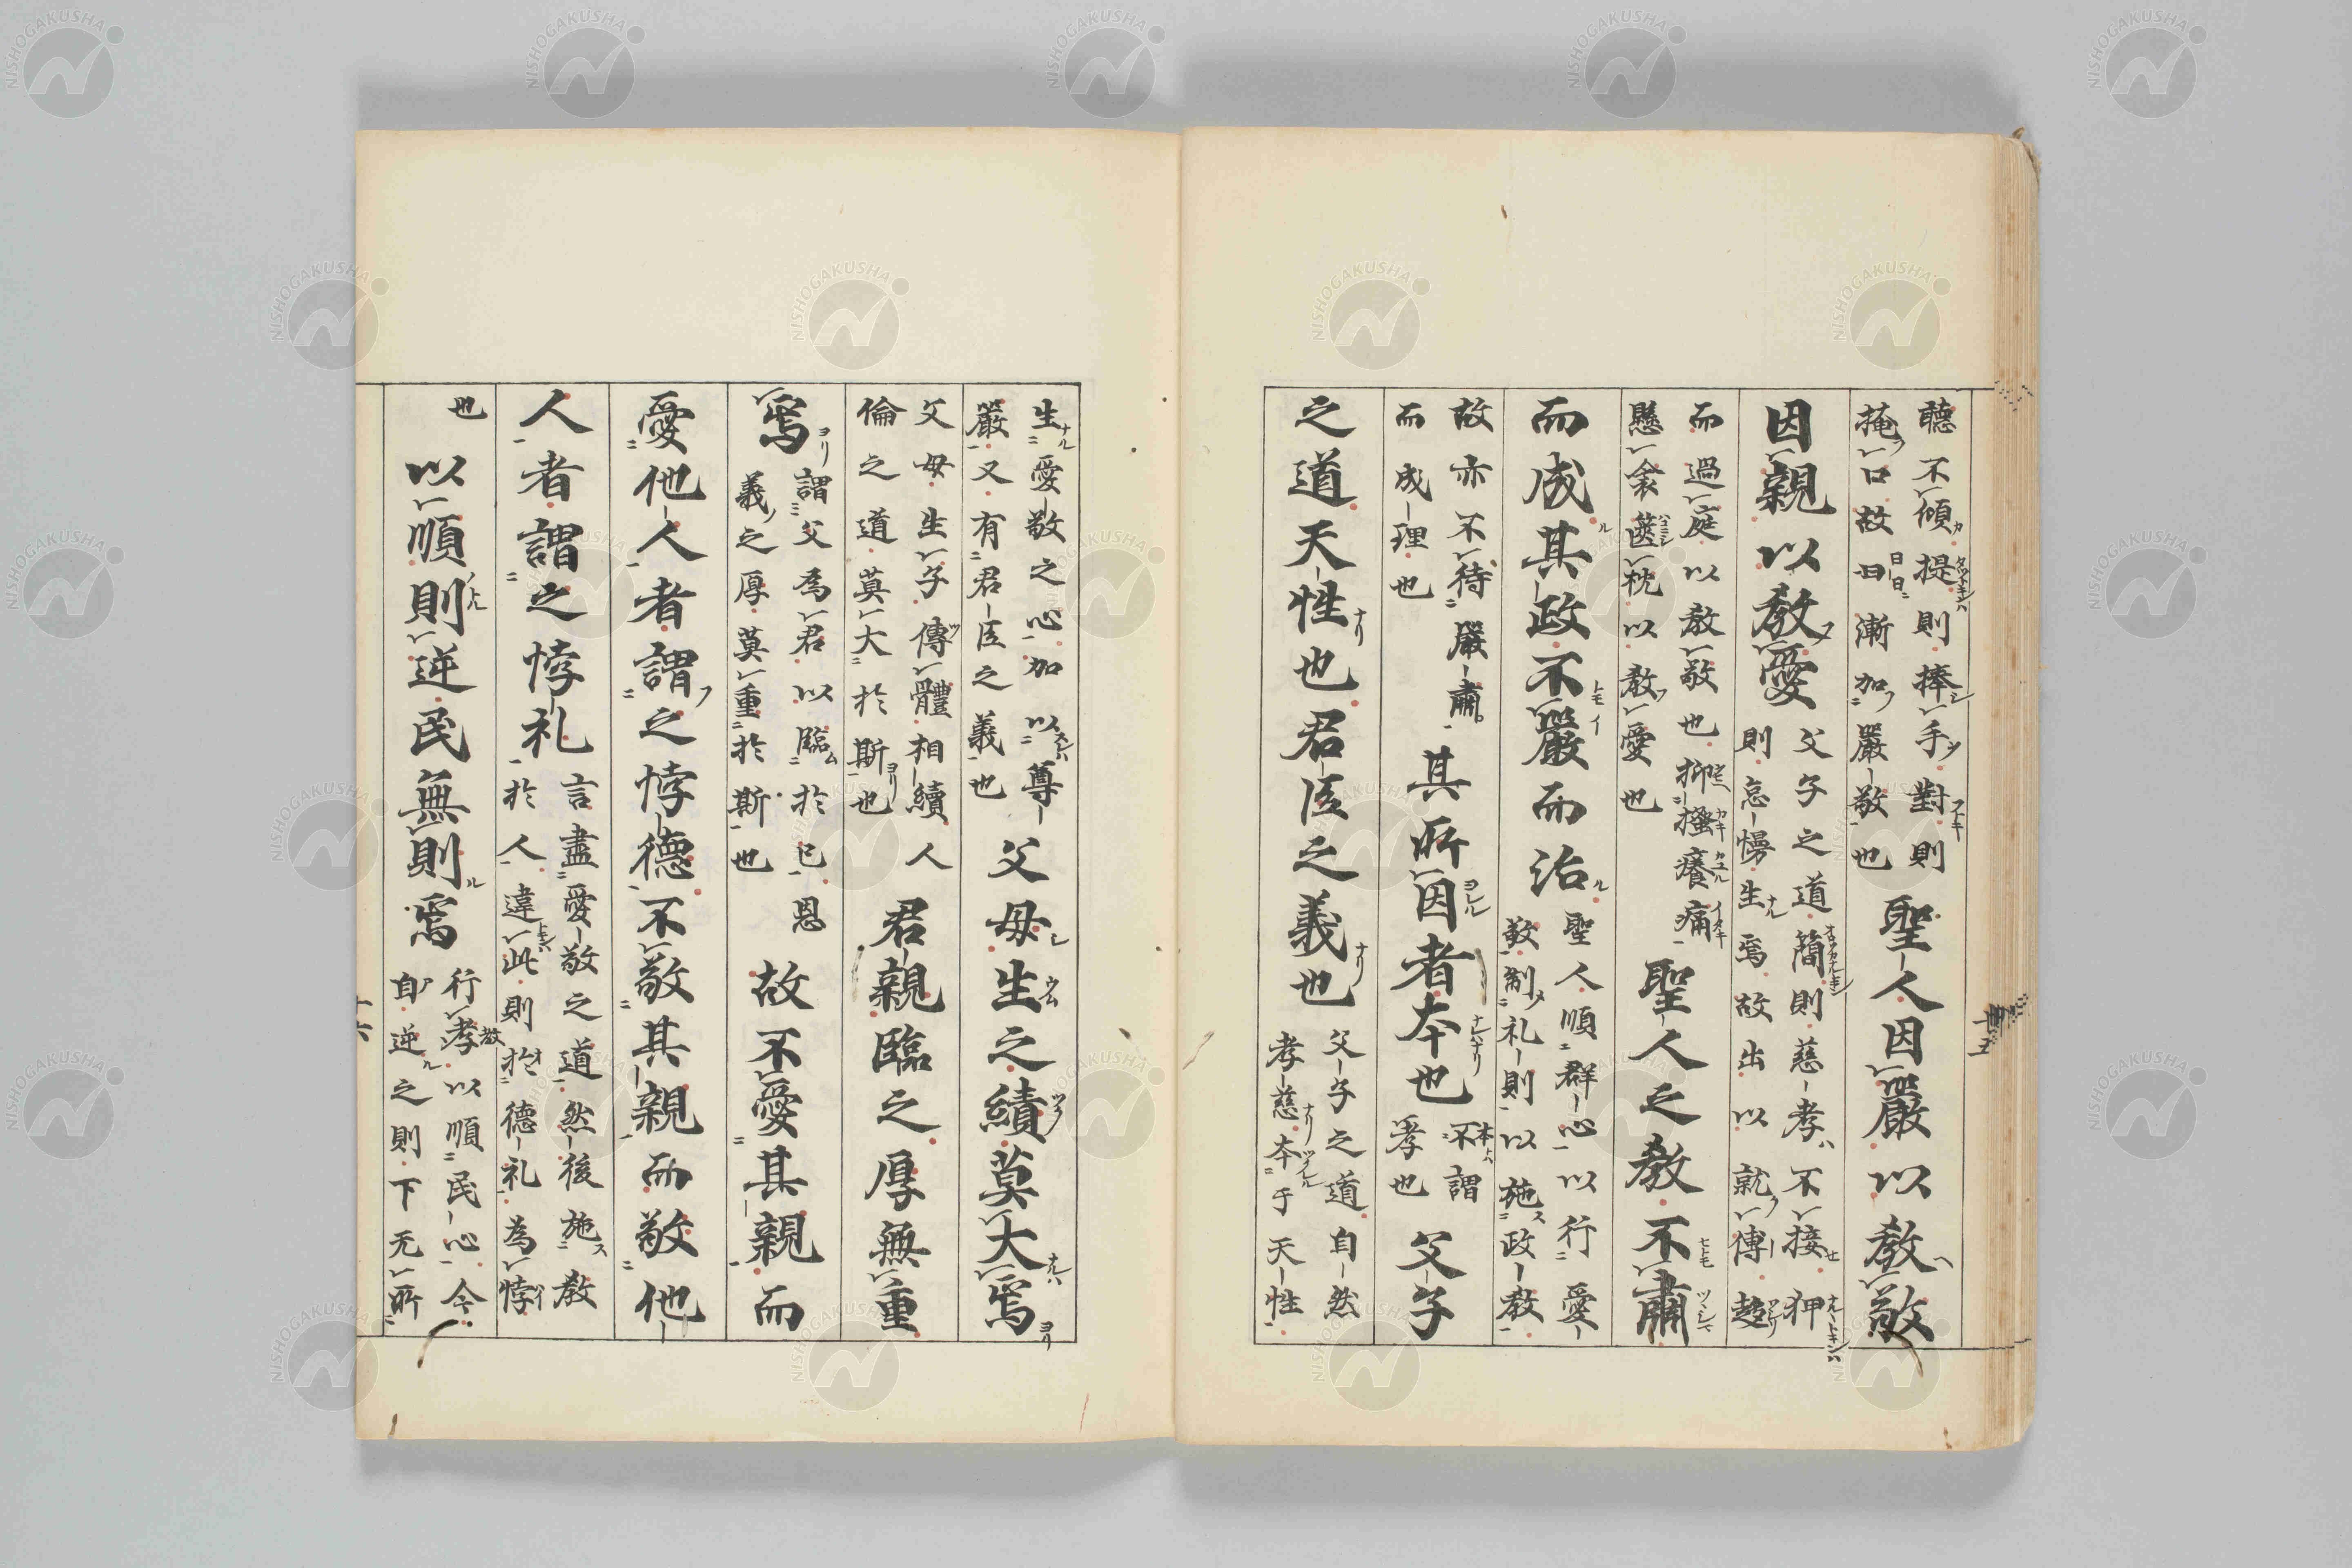 聽不傾提則捧手對則
掩口故日日漸加嚴敬也
聖人因嚴以敎敬
因親以敎愛
父子之道簡則慈孝不接狎
則怠慢生焉故出以就傳趍
而過庭以敎敬也抑搔癢痛
懸衾篋枕以敎愛也
聖人之敎不肅
而成其政不嚴而治
聖人順群心以行愛
敬制礼則以施政敎
故亦不待嚴肅
而成理也
其所因者本也
不謂
孝也
父子
之道天性也君臣之義也
父子之道自然
孝慈本于天性
生愛敬之心加以尊
嚴又有君臣之義也
父母生之績莫大焉
父母生子傳體相續人
倫之道莫大於斯也
君親臨之厚無重
焉
謂父為君以臨於已恩
義之厚莫重於斯也
故不愛其親而
愛他人者謂之悖德不敬其親而敬他
人者謂之悖礼
言盡愛敬之道然後施敎
於人違此則於德礼為悖
也
以順則逆民無則焉
行孝以順民心今
自逆之則下无所
NISHOGAKUSHA